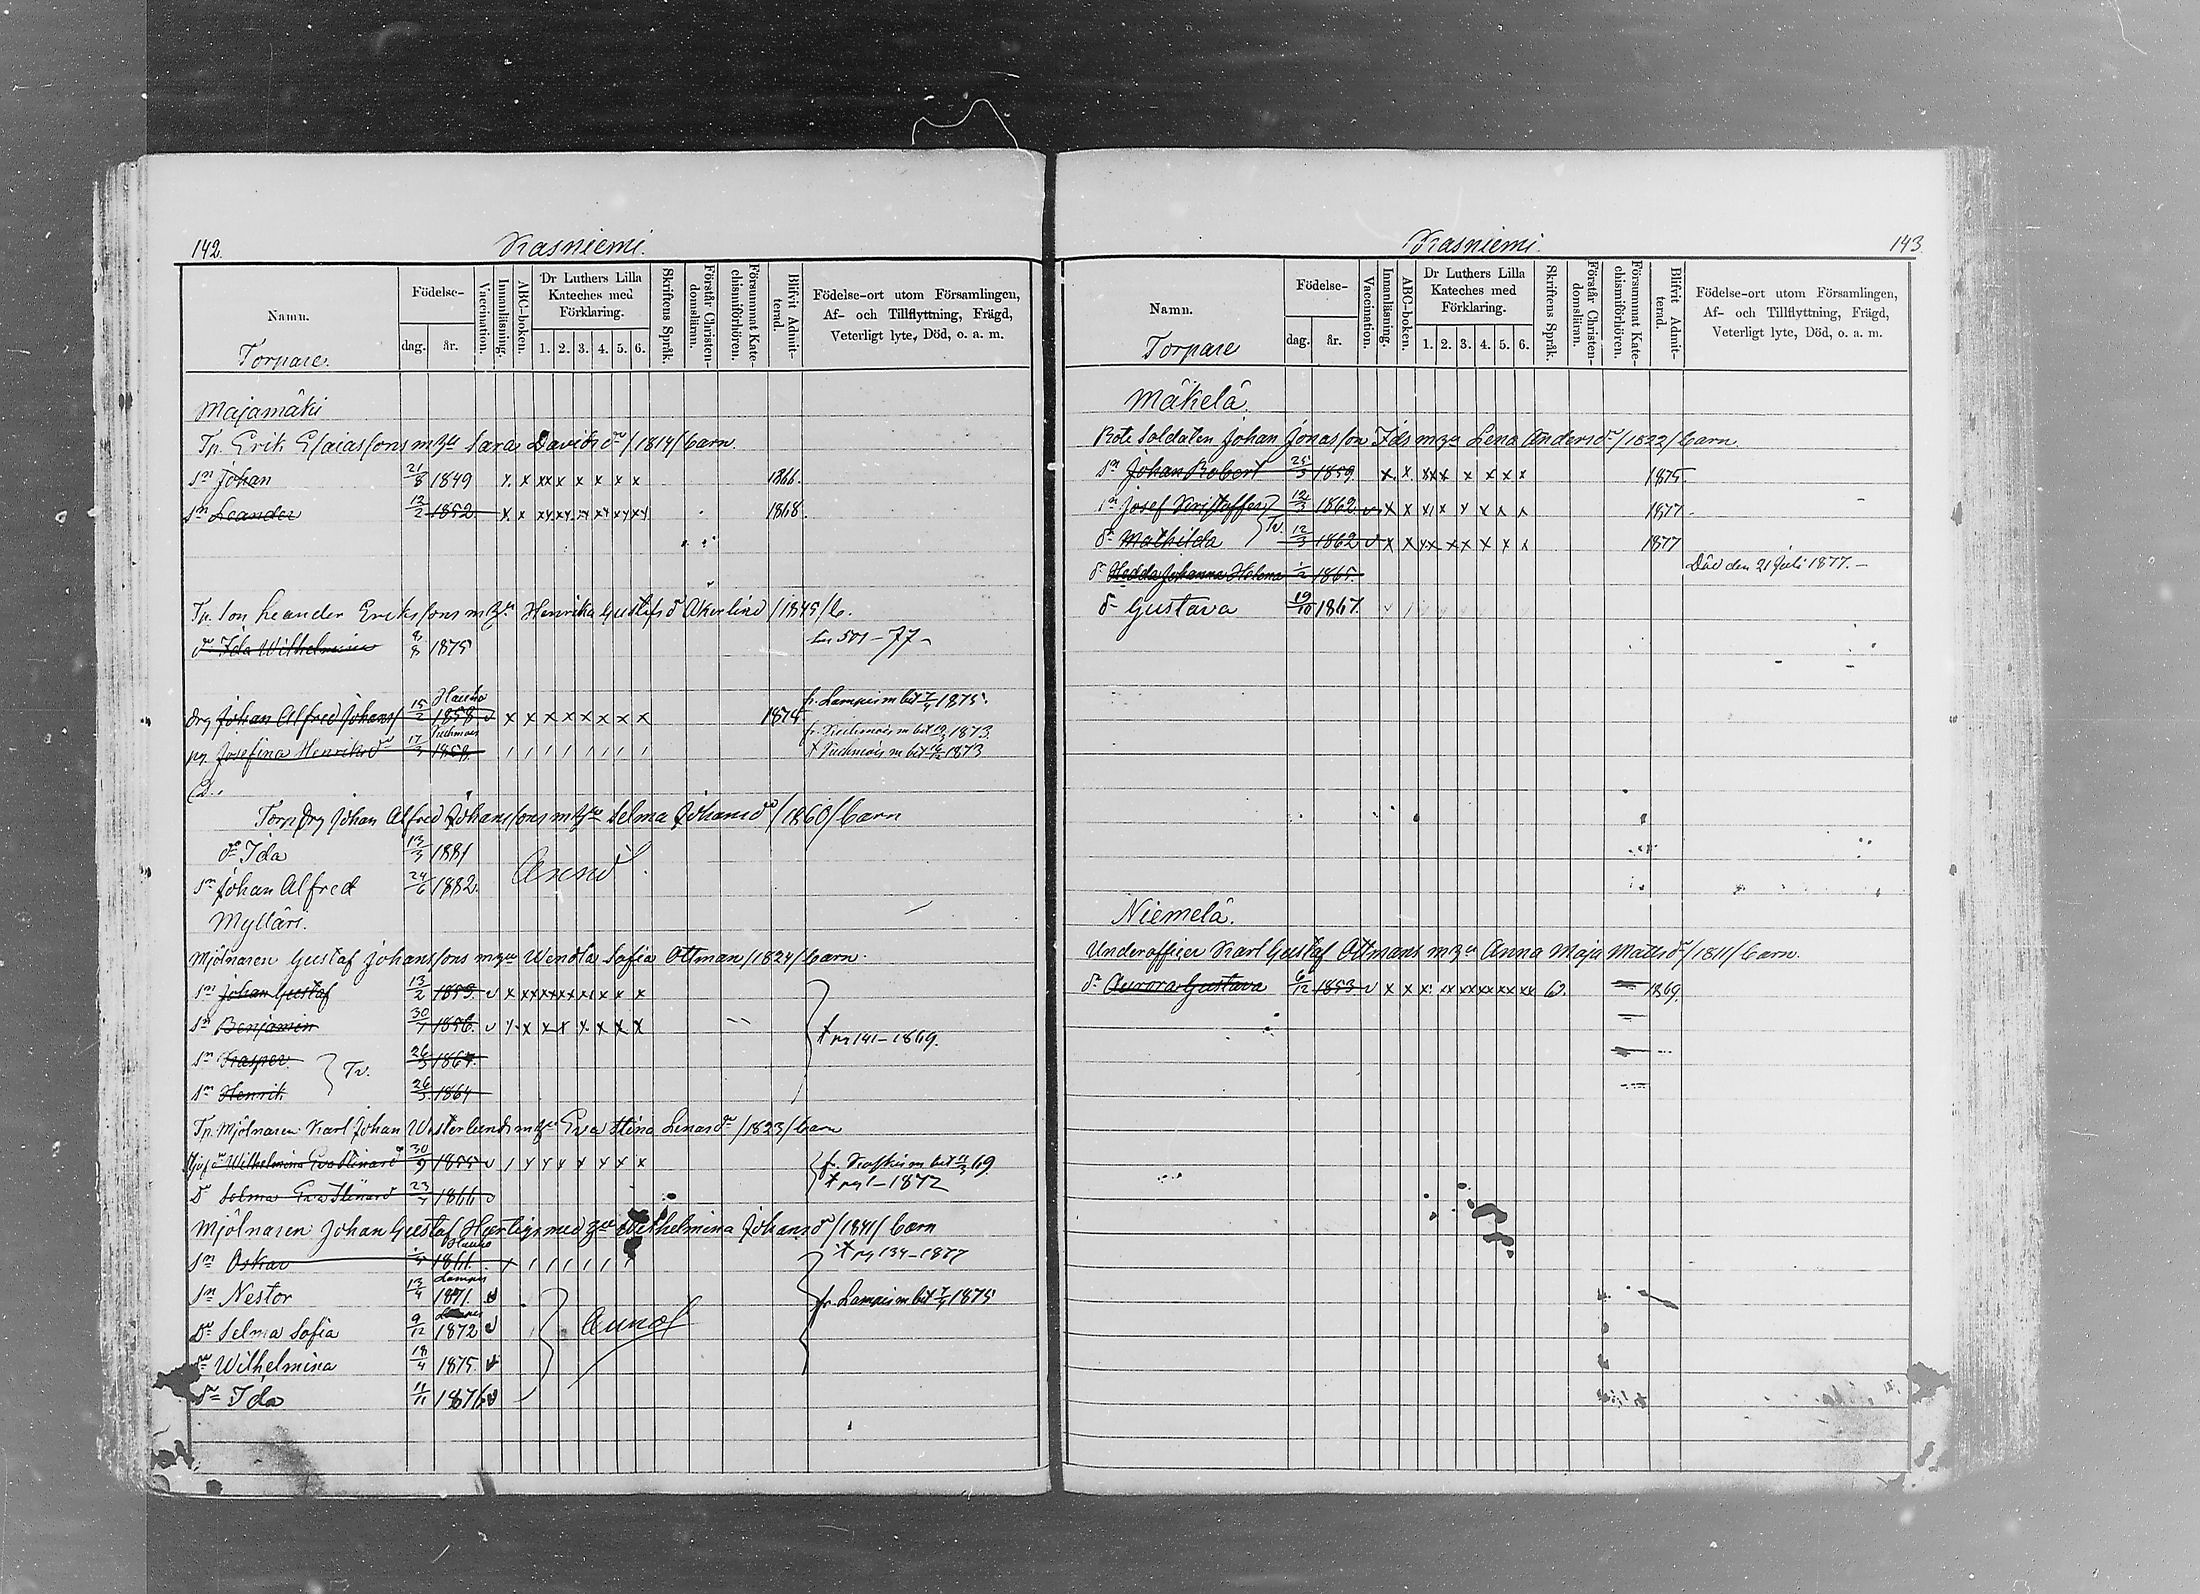 142.
Kasniemi.
Namn.
Torpare.
Födelse-
dag.
år.
Vaccination.
Innanläsning.
ABC-boken.
Dr Luthers Lilla
Kateches med
Förklaring.
1. 2. 3. 4. 5. 6.
Skriftens Språk.
Förstår Christen-
domsläran.
Försummat Kate-
chismiförhören.
Blifvit Admit-
terad.
Födelse-ort utom Församlingen,
Af- och Tillflyttning, Frägd,
Veterligt lyte, Död, o. a. m.
Majamäki
Tp. Erik Esaiassons m hu Sara Davidsdr /1814/ barn.
Sn Johan 21/8 1849 x. x xx x x x x x 1866.
Sn Leander 12/2 1852 x. x xx xx xx xx xx xx 1868.
Tp. Son Leander Erikssons m hu Henrika Gustafsd Åkerlind /1845/ b.
dr Ida Wilhelmina 8/8 1875 501-77-
Hauho
drg Johan Alfred Johanss 15/2 1858 v x x x x x x x x 1874. fr. Lampis m bet 7/4 1875.
pg. Josefina Henriksdr 17/3 1858. / / / / / / / /
fr. m bet 1873.
m bet 1873
Torp drg Johan Alfred Johanssons m hu Selma Johansdr /1860/ barn
dr Ida 13/3 1881
Sn Johan Alfred 24/6 1882.
Mylläri.
Mjölnaren Gustaf Johanssons m hu Wendla Sofia Ottman /1824/ barn.
Sn Johan Gustaf 13/2 1853. v x xx xx xx x x x x
Sn Benjamin 30/7 1856. v x x x x x x x x
t pg 141-1869.
Sn Kasper 26/3 1864.
Tv.
Sn Henrik 26/3 1864
Tp. Mjölnaren Karl Johan Westerlunds m hu Eva Stina Linasdr /1823/ barn
Wilhelmina Eva Stinasd 30/9 1855 v / x x x x x x x m bet 69
Dr Selma Eva Stinasd 23/7 1866 v t pg 1-1872
Mjölnaren Johan Gustaf med hu Wilhelmina Johansd /1841/ barn
Hauho
Sn Oskar 1861. / / / / / / t pg 134-1877
Lampis
Sn Nestor 13/4 1871. v fr Lampis m bet 7/4 1875
Dr Selma Sofia 9/12 1872 v
dr Wilhelmina 18/4 1875 v
dr Ida 11/11 1876 v
Kasniemi.
143.
Namn.
Torpare
Födelse-
dag.
år.
Vaccination.
Innanläsning.
ABC-boken.
Dr Luthers Lilla
Kateches med
Förklaring.
1. 2. 3. 4. 5. 6.
Skriftens Språk.
Förstår Christen-
domsläran.
Försummat Kate-
chismiförhören.
Blifvit Admit-
terad.
Födelse-ort utom Församlingen,
Af- och Tillflyttning, Frägd,
Veterligt lyte, Död, o. a. m.
Mäkelä.
Rote Soldaten Johan Jonasson m hu Lena Andersdr /1822/ barn.
Sn Johan Robert 25/3 1859. x. x. xx x x x x x 1875.
Sn Josef Kristoffer 12/3 1862 v x x x x x x x x 1877.
Tv.
dr Mathilda 12/3 1862 v x x xx xx x x x 1877
dr Hedda Johanna Helena 1/2 1865. Död den 21 Juli 1877.-
dr Gustava 19/10 1867.
Niemelä.
Underofficer Karl Gustaf Ottmans m hu Anna Maja Mattsdr /1811/ barn.
dr Aurora Gustava 6/12 1853 v x x x xx xx xx xx xx 1869.